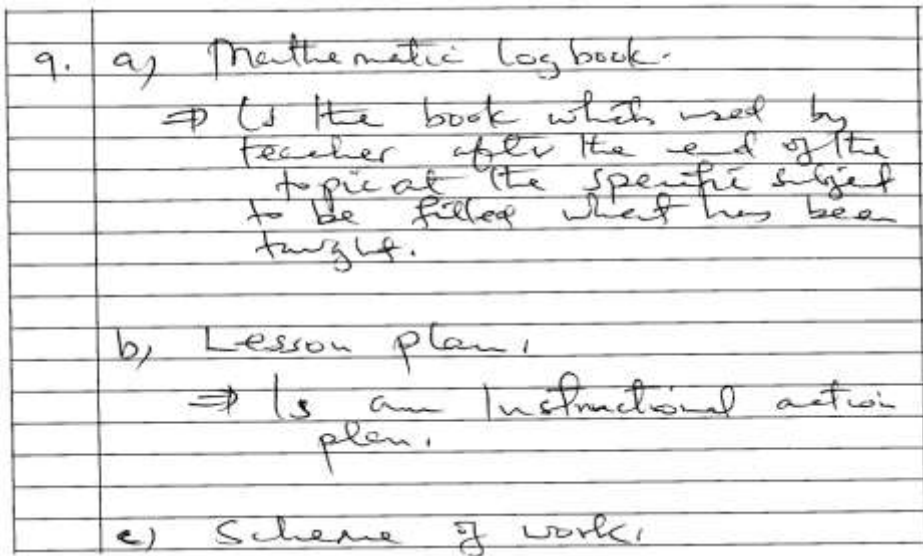 9. a) Mathematic logbook.
⇒ Is the book which used by
teacher after the end of the
topic at the specific subject
to be filled what has been
taught.
b) Lesson plan.
⇒ Is an Instructional action
plan.
c) Scheme of work.